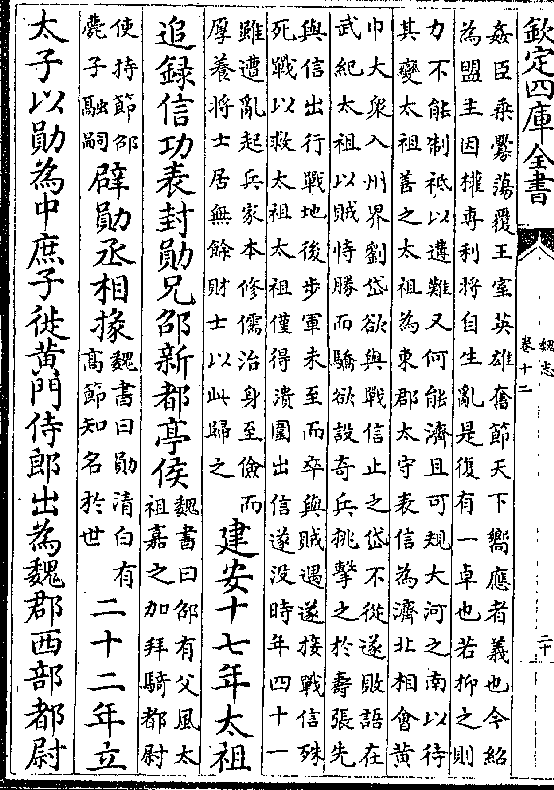 欽定四庫全書
魏志
卷十二
二十
姦臣乘釁蕩覆王室英雄奮節天下嚮應者義也今紹
為盟主因權專利將自生亂是復有一卓也若抑之則
力不能制祗以遘難又何能濟且可規大河之南以待
其變太祖善之太祖為東郡太守表信為濟北相會黃
巾大衆入州界劉岱欲與戰信止之岱不從遂敗語在
武紀太祖以賊恃勝而驕欲設奇兵挑擊之於壽張先
與信出行戰地後步軍未至而卒與賊遇遂接戰信殊
死戰以救太祖太祖僅得潰圍出信遂没時年四十一
雖遭亂起兵家本修儒治身至儉而
厚養將士居無餘財士以此歸之
建安十七年太祖
追録信功表封勛兄邵新都亭侯
魏書曰邵有父風太
祖嘉之加拜騎都尉
使持節邵
薨子融嗣
辟勛丞相掾
魏書曰勛清白有
高節知名於世
二十二年立
太子以勛為中庶子徙黃門侍郎出為魏郡西部都尉